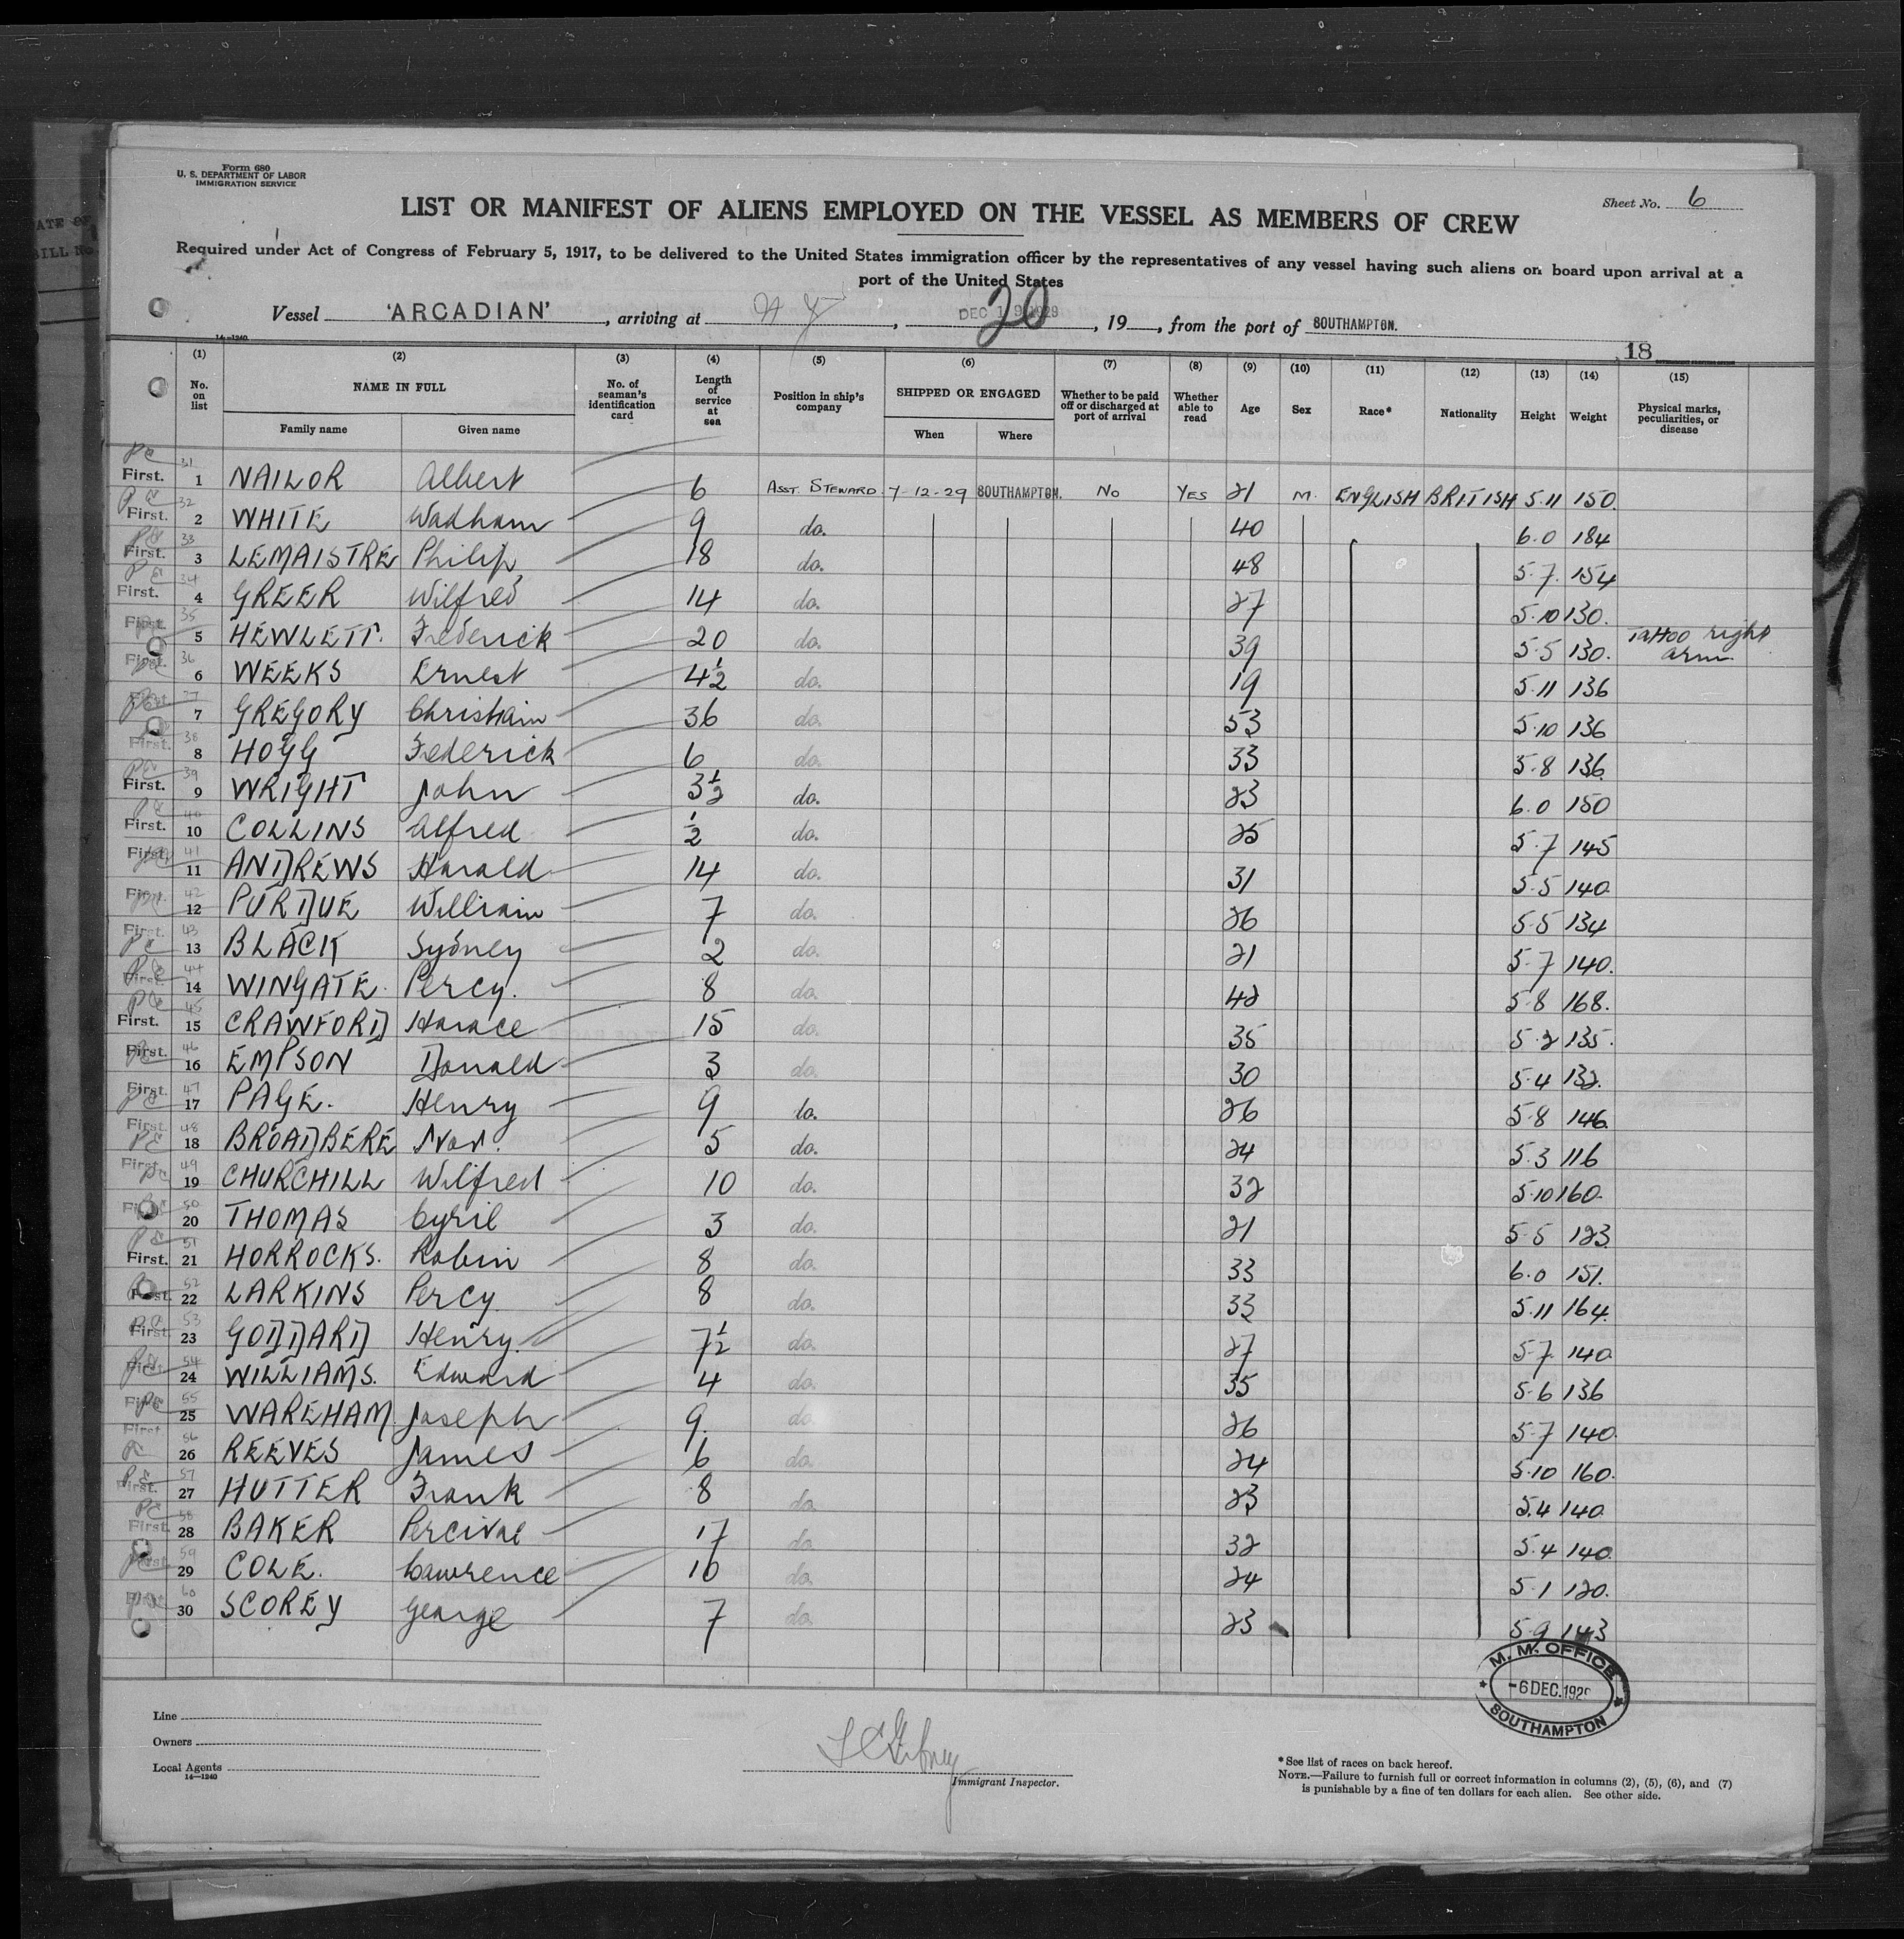 Form 680
U. S. DEPARTMENT OF LABOR
IMMIGRATION SERVICE
Sheet No. 6
LIST OR MANIFEST OF ALIENS EMPLOYED ON THE VESSEL AS MEMBERS OF CREW
Required under Act of Congress of February 5, 1917, to be delivered to the United States immigration officer by the representatives of any vessel having such aliens on board upon arrival at a
port of the United States
Vessel 'ARCADIAN', arriving at N Y, DEC 19 1929 20, 19__, from the port of SOUTHAMPTON.
14—1240
18
(1) (2) (3) (4) (5) (6) (7) (8) (9) (10) (11) (12) (13) (14) (15)
No. on list NAME IN FULL No. of seaman's identification card Length of service at sea Position in ship's company SHIPPED OR ENGAGED Whether to be paid off or discharged at port of arrival Whether able to read Age Sex Race* Nationality Height Weight Physical marks, peculiarities, or disease
Family name Given name When Where
First. 31 1 NAILOR Albert 6 ASST. STEWARD 7-12-29 SOUTHAMPTON. NO YES 21 M. ENGLISH BRITISH 5.11 150.
First. 32 2 WHITE Wadham 9 do. 40 6.0 184
First. 33 3 LEMAISTRE Philip 18 do. 48 5.7. 154
First. 34 4 GREER Wilfred 14 do. 27 5.10 130.
First. 35 5 HEWLETT. Frederick 20 do. 39 5.5 130. Tattoo right arm
First. 36 6 WEEKS Ernest 4½ do. 19 5.11 136
First. 37 7 GREGORY Christiain 36 do. 53 5.10 136
First. 38 8 HOGG Frederick 6 do. 33 5.8 136
First. 39 9 WRIGHT John 3½ do. 23 6.0 150
First. 40 10 COLLINS Alfred ½ do. 25 5.7 145
First. 41 11 ANDREWS Harald 14 do. 31 5.5 140
First. 42 12 PURDUE William 7 do. 26 5.5 134
First. 43 13 BLACK Sydney 2 do. 21 5.7 140.
First. 44 14 WINGATE. Percy. 8 do. 42 5.8 168.
First. 45 15 CRAWFORD Horace 15 do. 35 5.2 135.
First. 46 16 EMPSON Donald 3 do. 30 5.4 132.
First. 47 17 PAGE. Henry 9 do. 26 5.8 146
First. 48 18 BROADBERE 5 do. 24 5.3 116
First. 49 19 CHURCHILL Wilfred 10 do. 32 5.10 160.
First. 50 20 THOMAS Cyril 3 do. 21 5.5 123
First. 51 21 HORROCKS. Robin 8 do. 33 6.0 151.
First. 52 22 LARKINS Percy 8 do. 33 5.11 164.
First. 53 23 GODDARD Henry. 7½ do. 27 5.7 140
First. 54 24 WILLIAMS. Edward 4 do. 35 5.6 136
First. 55 25 WAREHAM. Joseph 9. do. 26 5.7 140.
First. 56 26 REEVES James 6 do. 24 5.10 160.
First. 57 27 HUTTER Frank 8 do. 23 5.4 140
First. 58 28 BAKER Percival 17 do. 32 5.4 140
First. 59 29 COLE. Lawrence 10 do. 24 5.1 120.
First. 60 30 SCOREY George 7 do. 23 5.9 143
9
M. M. OFFICE
-6 DEC. 1929
SOUTHAMPTON
Line
Owners
Local Agents
14—1240
Immigrant Inspector.
*See list of races on back hereof.
NOTE.—Failure to furnish full or correct information in columns (2), (5), (6), and (7)
is punishable by a fine of ten dollars for each alien. See other side.